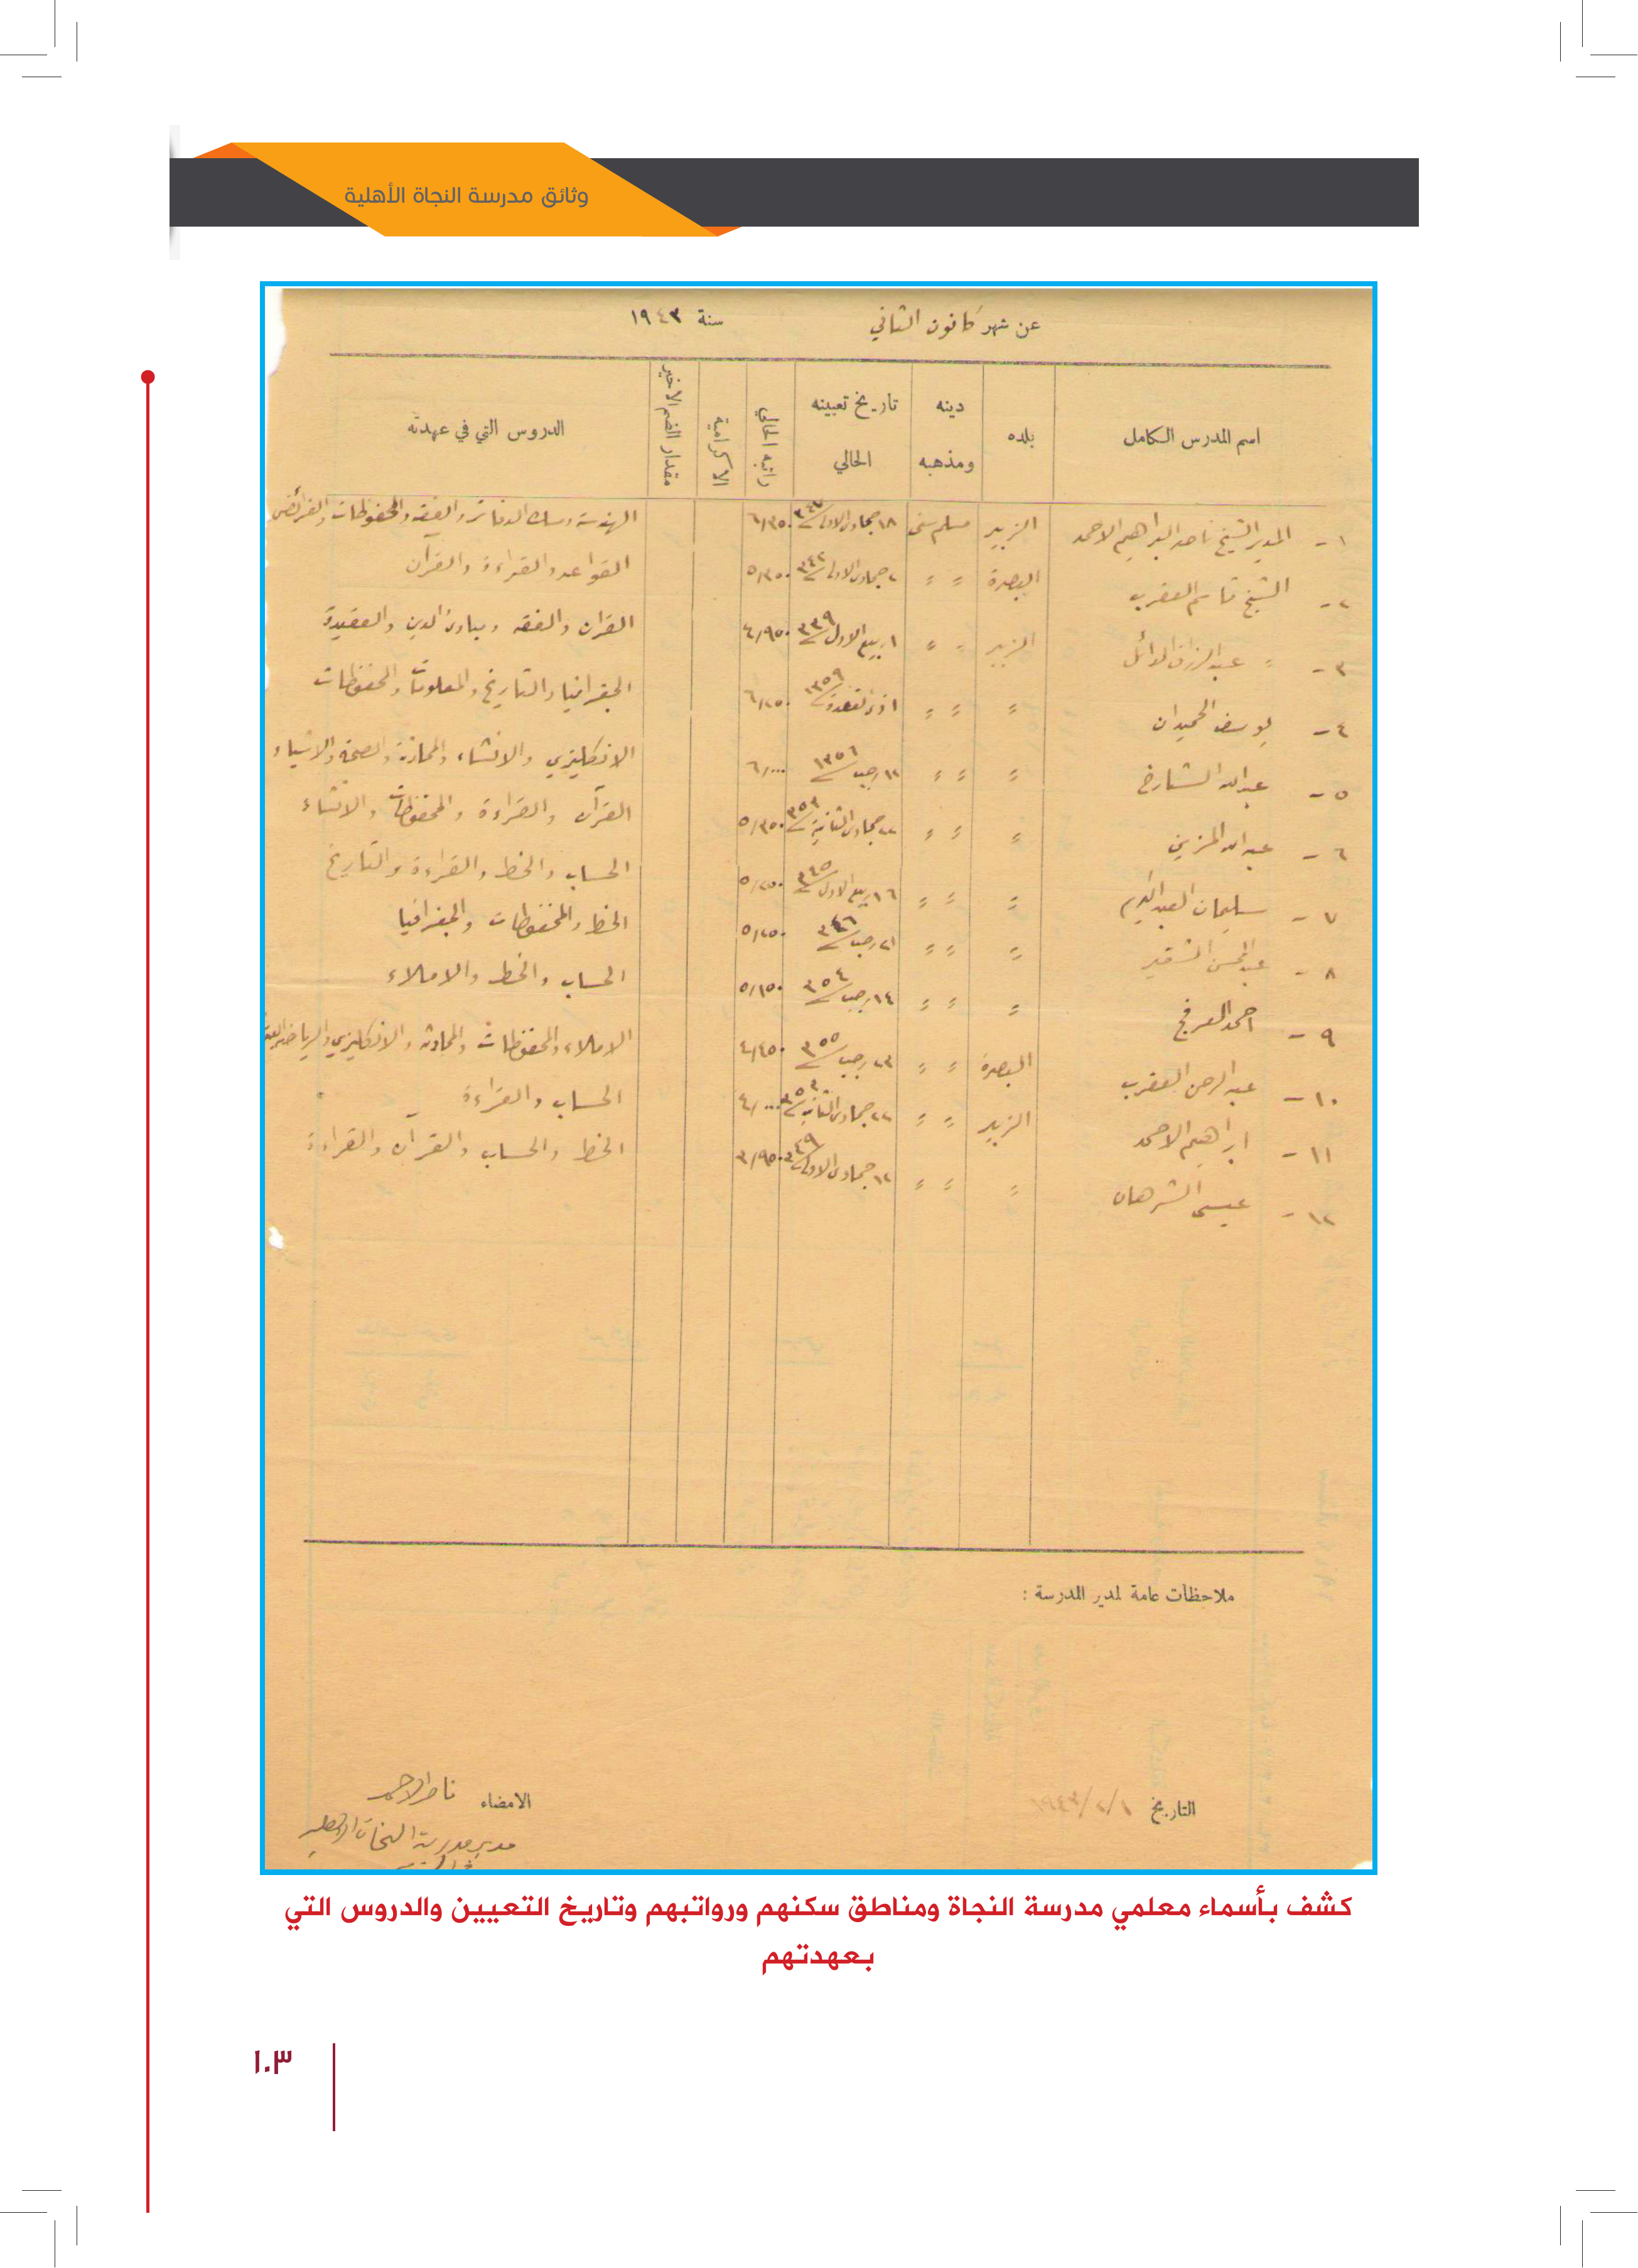 وثائق مدرسة النجاة الأهلية
عن شهر كانون الثاني سنة ١٩٤٣
اسم المدرس الكامل بلده دينه ومذهبه تاريخ تعيينه الحالي راتبه الحالي الاكرامية مقدار الضم الاخير الدروس التي في عهدته
١- المدير الشيخ ناصر البراهيم الاحمد الزبير مسلم سني ١٨ جمادى الاولى ٦/٣٥٠ الهندسة ومسك الدفاتر والفقه والمحفوظات والفرائض
٢- الشيخ قاسم العقرب البصرة " " ٢ جمادى الاولى ٣٤٢ ٥/٣٥٠ القواعد والقراءة والقرآن
٣- " عبد الرزاق الدائل الزبير " " ١ ربيع الاول ٣٣٩ ٤/٩٥٠ القران والفقه ومبادئ الدين والعقيدة
٤- يوسف الحميدان " " " ١ ذي القعدة ١٣٥٩ ٦/٢٥٠ الجغرافيا والتاريخ والمعلومات والمحفوظات
٥- عبدالله الشارخ " " " ١٢ رجب ١٣٥٦ ٦/٠٠٠ الانكليزي والانشاء والمحادثة والصحة والاشياء
٦- عبدالله المزين " " " ٢٢ جمادى الثانية ٣٥٣ ٥/٣٥٠ القرآن والقراءة والمحفوظات والانشاء
٧- سليمان العبدالكريم " " " ١٦ ربيع الاول ٣٤٥ ٥/٢٥٠ الحساب والخط والقراءة والتاريخ
٨- عبدالمحسن الشقير " " " ٢١ رجب ٣٤٦ ٥/٢٥٠ الخط والمحفوظات والجغرافيا
٩- احمد العرفج " " " ١٤ رجب ٣٥٤ ٥/١٥٠ الحساب والخط والاملاء
١٠- عبد الرحمن العقرب البصرة " " ٢٣ رجب ٣٥٥ ٤/٤٥٠ الاملاء والمحفوظات والمحادثة والانكليزي والرياضة
١١- ابراهيم الاحمد الزبير " " ٢٢ جمادى الثانية ٤/٠٠٠ الحساب والقراءة
١٢- عيسى الشرهان " " " ١٢ جمادى الاولى ٣٤٩ ٣/٩٥٠ الخط والحساب والقرآن والقراءة
ملاحظات عامة لمدير المدرسة :
التاريخ ١/٢/١٩٤٣ الامضاء ناصر الاحمد
مدير مدرسة النجاة الاهلية
كشف بأسماء معلمي مدرسة النجاة ومناطق سكنهم ورواتبهم وتاريخ التعيين والدروس التي
بعهدتهم
١٠٣